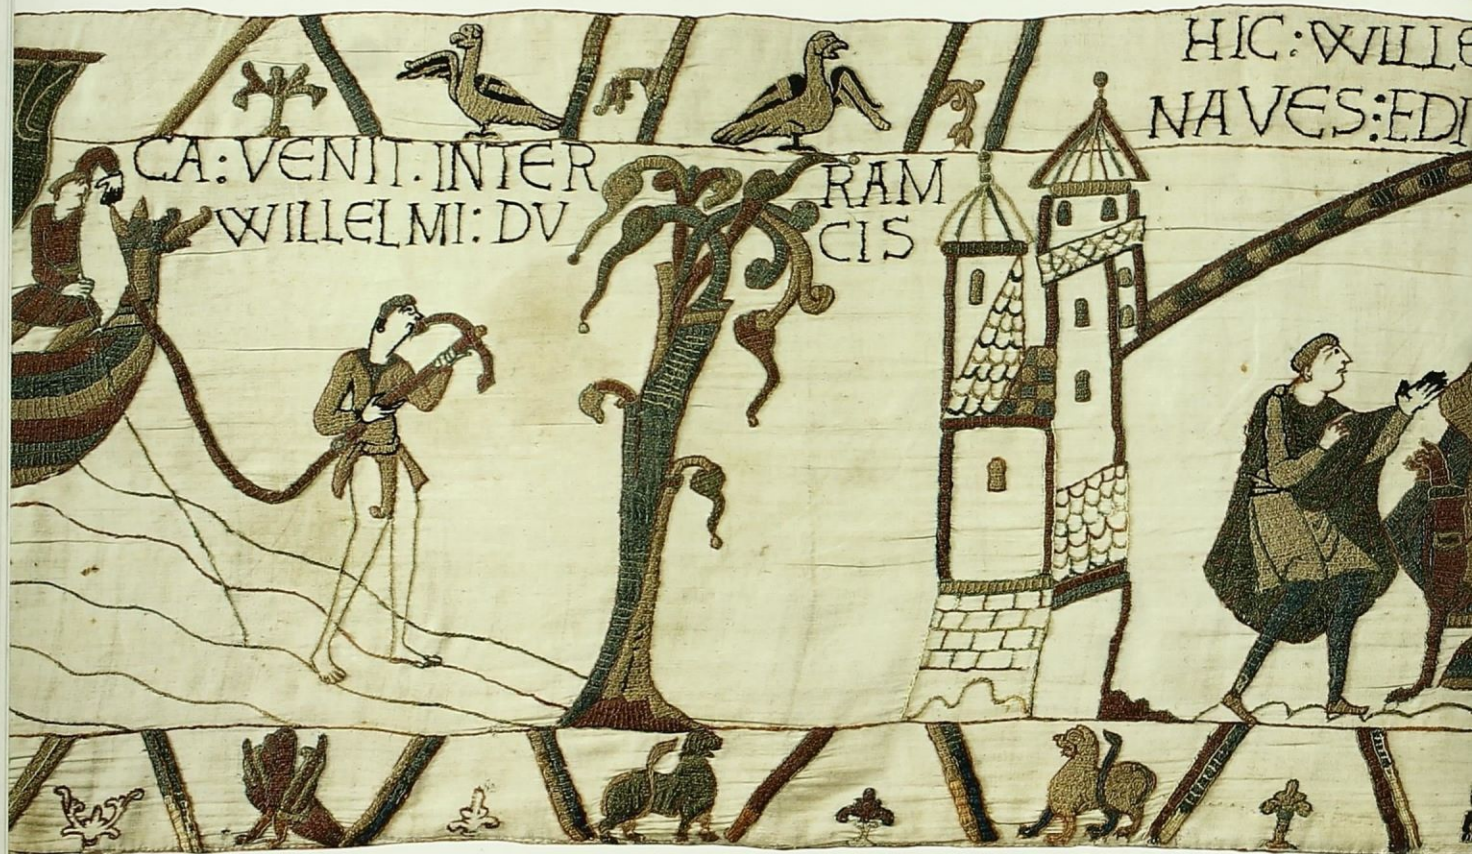 CA: VENIT. INTER RAM
WILLELMI: DV CIS
HIC: WILLE
NAVES: EDI